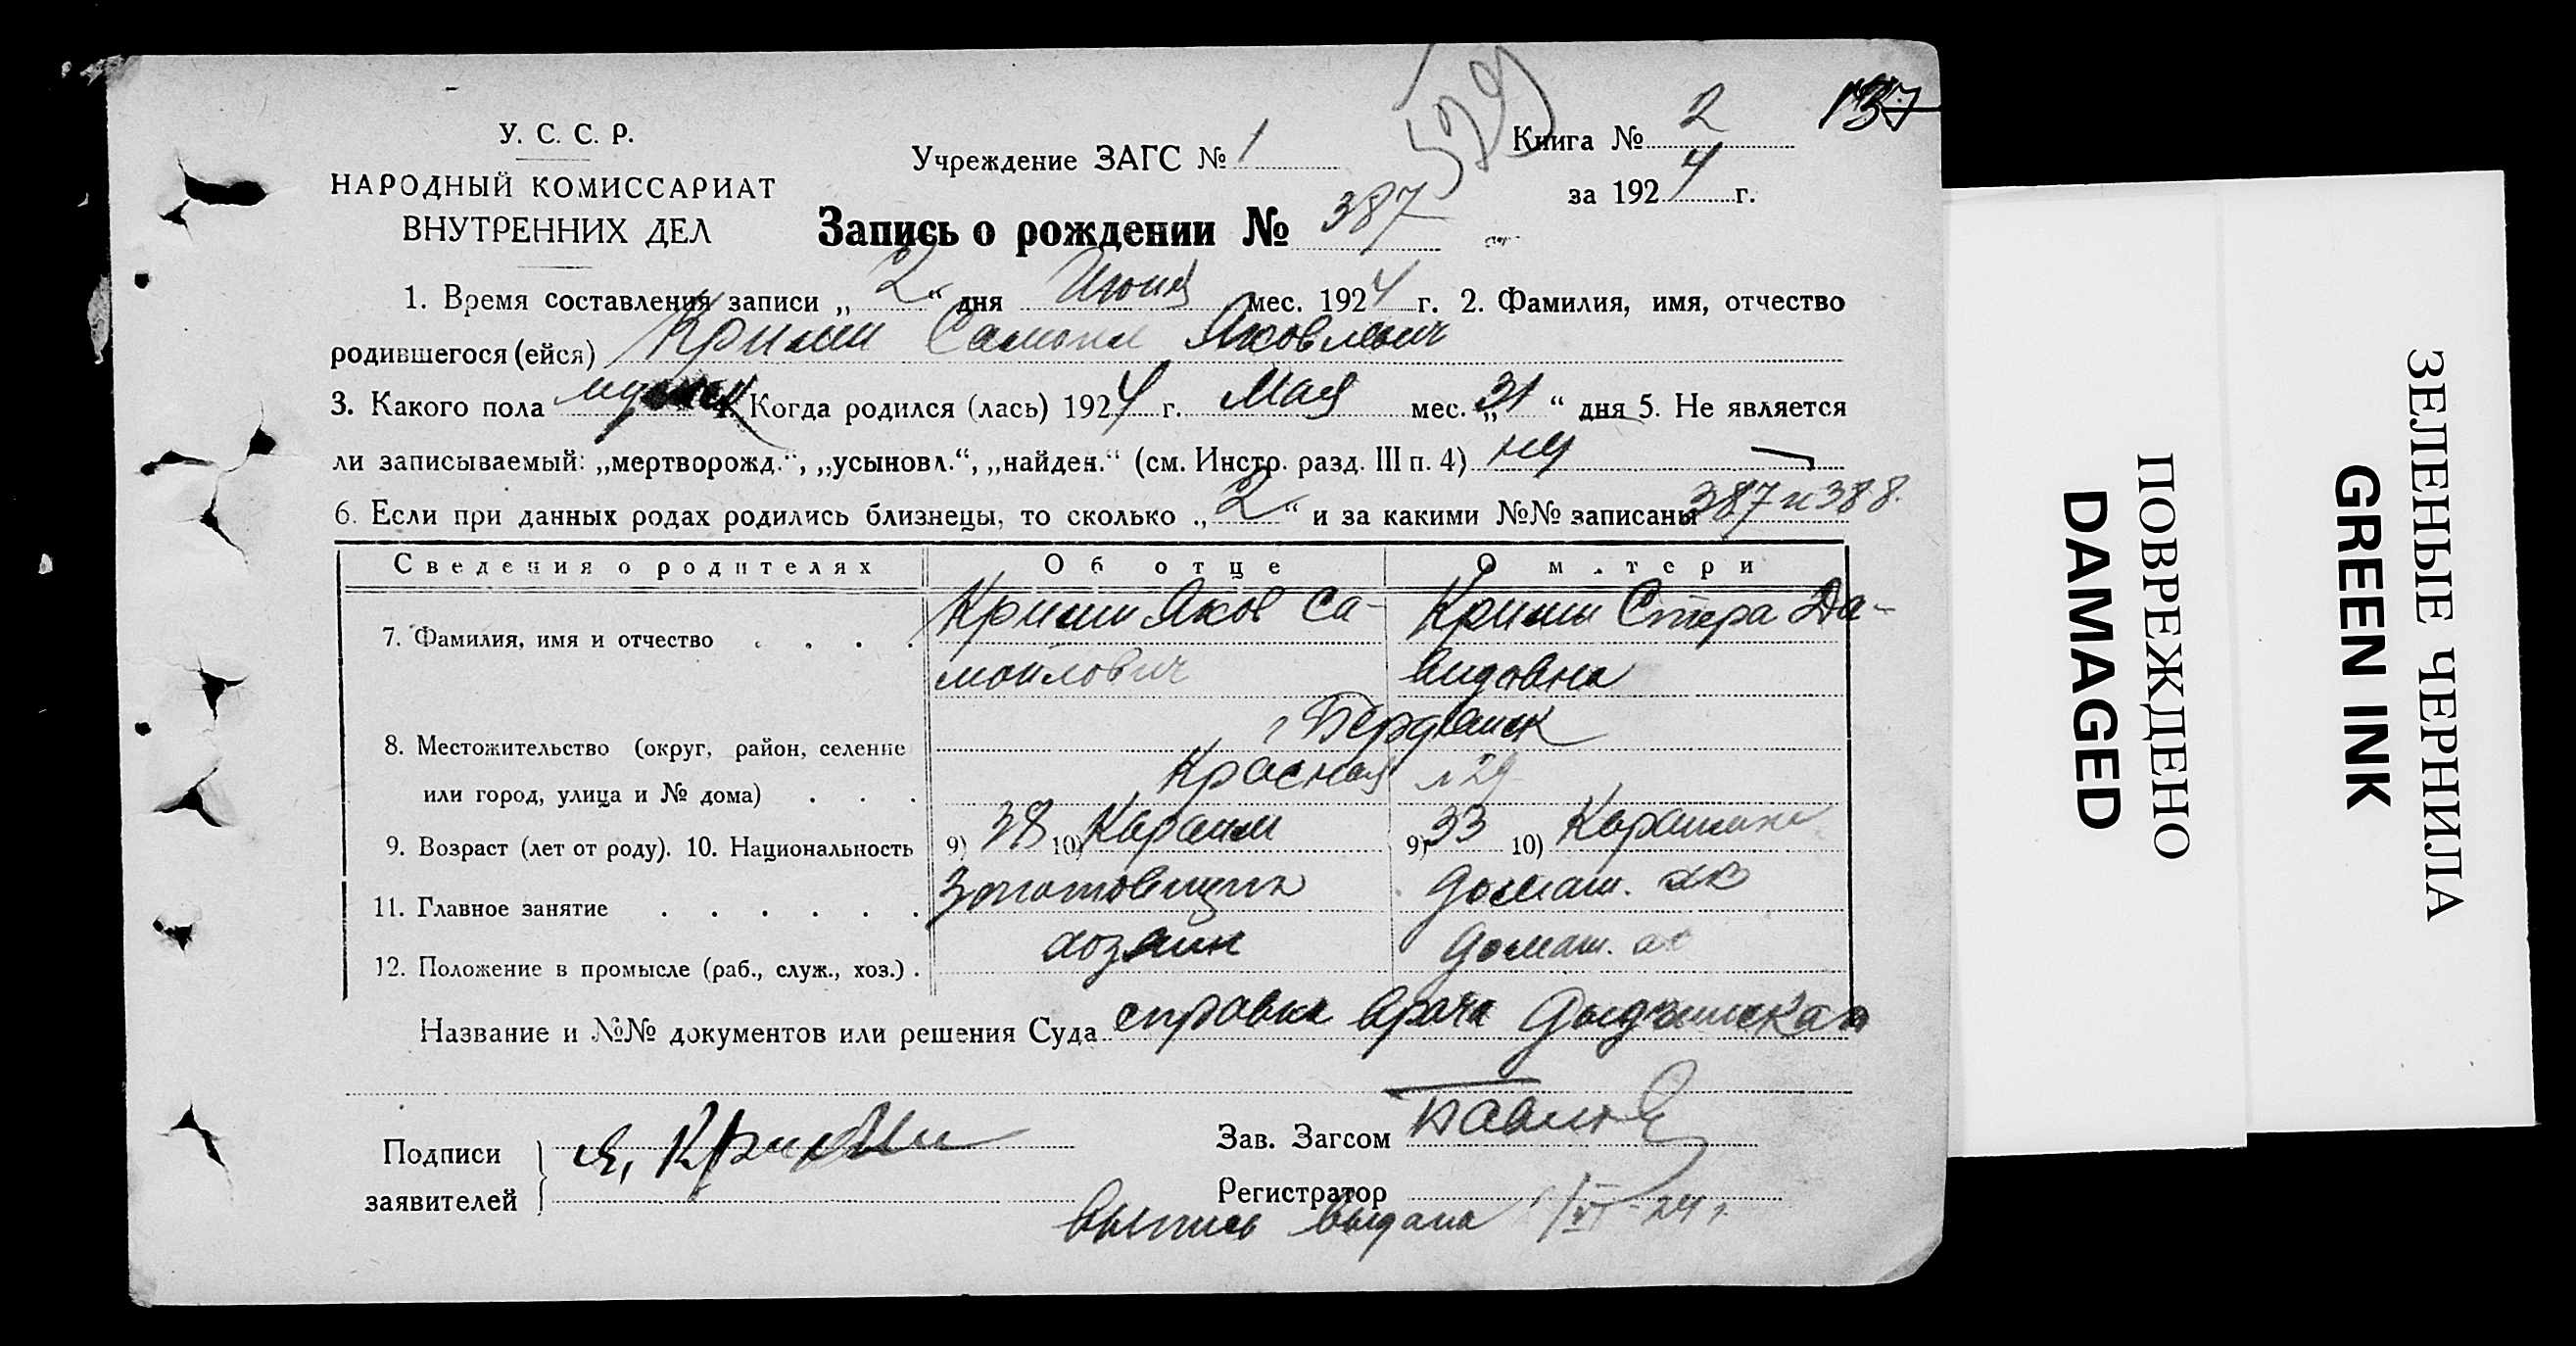 529
137
У. С. С. Р.
НАРОДНЫЙ КОМИССАРИАТ
ВНУТРЕННИХ ДЕЛ
Учреждение ЗАГС № 1
Книга № 2
за 1924 г.
Запись о рождении № 387
1. Время составления записи „2“ дня Июня мес. 1924 г. 2. Фамилия, имя, отчество
родившегося (ейся) Крими Самоил Яковлевич
3. Какого пола мужск Когда родился (лась) 1924 г. Мая мес. „31“ дня 5. Не является
ли записываемый: „мертворожд.“, „усыновл.“, „найден.“ (см. Инстр. разд. III п. 4)
6. Если при данных родах родились близнецы, то сколько „2“ и за какими №№ записаны 387 и 388.
Сведения о родителях Об отце О м.тери
7. Фамилия, имя и отчество . . . . Крими Яков Са- Крими Стера Да-
моилович видовна
8. Местожительство (округ, район, селение г Бердянск
или город, улица и № дома) . . . Красная 29
9. Возраст (лет от роду). 10. Национальность 9) 38 10) Караим 9) 33 10) Караимка
11. Главное занятие . . . . . . Заготовщик домаш. хо
12. Положение в промысле (раб., служ., хоз.) . хозяин домаш. хо
Название и №№ документов или решения Суда справка врача
Подписи заявителей Я, Крими
Зав. Загсом Павлов
Регистратор
выпись выдана /VI-24 г.
ПОВРЕЖДЕНО
DAMAGED
ЗЕЛЕНЫЕ ЧЕРНИЛА
GREEN INK